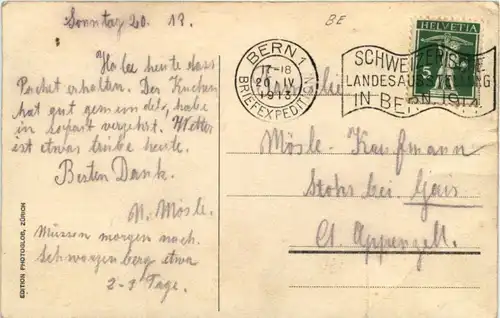 Sonntag 20. 13.
BE
Habe heute das
Packet erhalten. Der Kuchen
hat gut gemundet, habe
in sofort verzehrt. Wetter
ist etwas trübe heute.
Besten Dank.
N. Mösle.
Müssen morgen nach
Schwarzenberg etwa
2-3 Tage.
EDITION PHOTOGLOB, ZÜRICH
BERN 1
17-18
20. IV.
1913
BRIEFEXPEDITION
SCHWEIZERISCHE
LANDESAUSSTELLUNG
IN BERN 1914
HELVETIA
5
Familie
Mösle-Kaufmann
Stoss bei Gais
Ct. Appenzell.